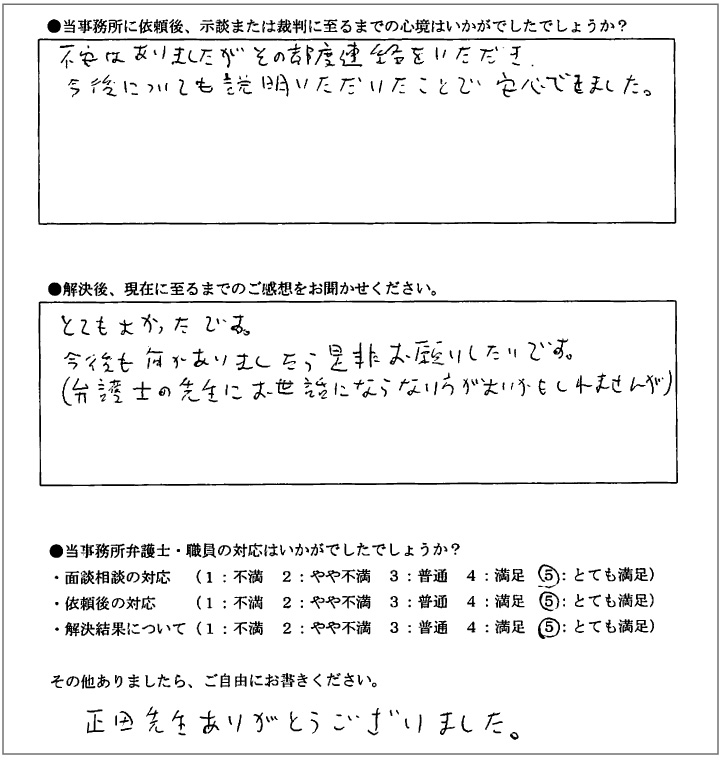 ●当事務所に依頼後、示談または裁判に至るまでの心境はいかがでしたでしょうか？
不安はありましたがその都度連絡をいただき、
今後についても説明いただいたことで安心できました。
●解決後、現在に至るまでのご感想をお聞かせください。
とてもよかったです。
今後も何かありましたら是非お願いしたいです。
(弁護士の先生にお世話にならない方が良いかもしれませんが)
●当事務所弁護士・職員の対応はいかがでしたでしょうか？
・面談相談の対応　(１：不満　２：やや不満　３：普通　４：満足　⑤：とても満足)
・依頼後の対応　(１：不満　２：やや不満　３：普通　４：満足　⑤：とても満足)
・解決結果について(１：不満　２：やや不満　３：普通　４：満足　⑤：とても満足)
その他ありましたら、ご自由にお書きください。
正田先生ありがとうございました。